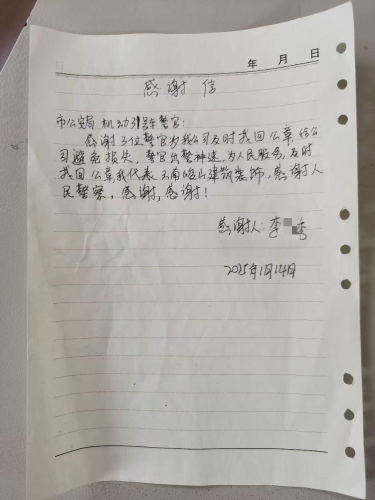 年 月 日
感谢信
市公安局 机动引导车警官:
感谢三位警官为我公司及时找回公章,给公
司避免损失,警官出警神速,为人民服务,及时
找回公章我代表 山建筑装饰,感谢人
民警察,感谢,感谢!
感谢人:李 秀
2025年1月14日